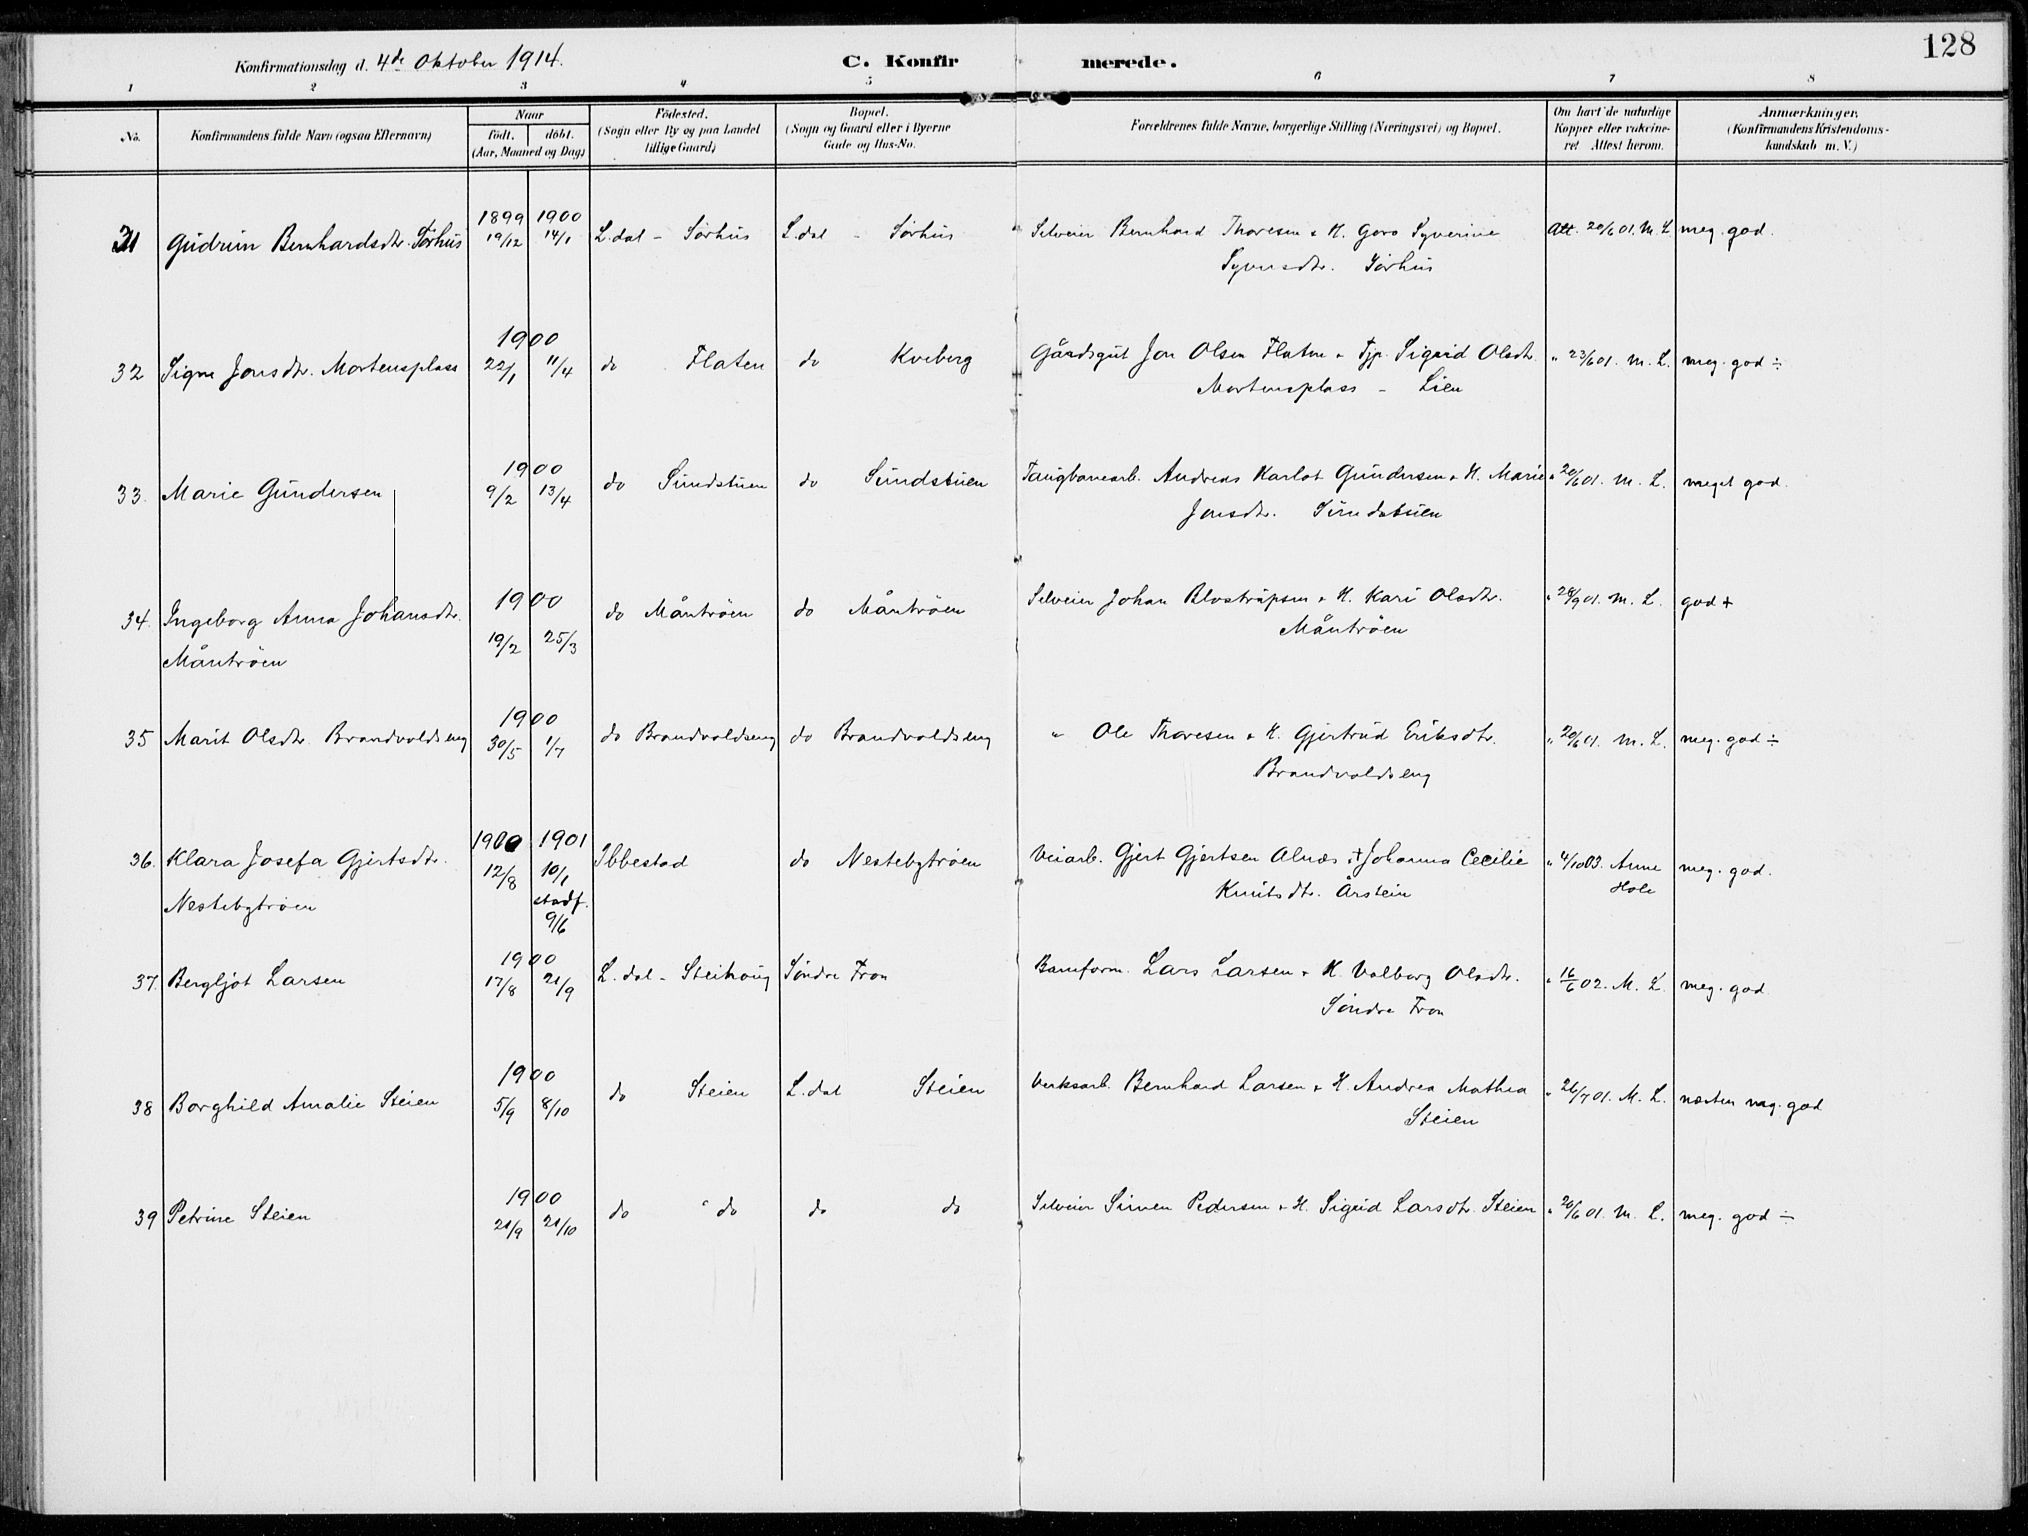 128
Konfirmationsdag d. 4de Oktober 1914.
C. Konfirmerede.
1 2 3 4 5 6 7 8
No.
Konfirmandens fulde Navn (ogsaa Efternavn)
Naar
født. døbt.
(Aar, Maaned og Dag)
Fødested.
(Sogn eller By og paa Landet
tillige Gaard)
Bopæl.
(Sogn og Gaard eller i Byerne
Gade og Hus-No.
Forældrenes fulde Navne, borgerlige Stilling (Næringsvei) og Bopæl.
Om havt de naturlige
Kopper eller vakcine-
ret Attest herom.
Anmærkninger.
(Konfirmandens Kristendoms-
kundskab m. V.)
1899 1900
31 Gudrun Bernhardsdtr. Sørhus 19/12 14/1 L.dal - Sørhus L.dal - Sørhus Selveier Bernhard Thoresen & H. Goro Syverine Att. 20/6 01. M. L. meg. god.
Syversdtr. Sørhus
1900
32 Signe Jonsdtr. Mortensplass 22/1 11/4 do Flaten do Kveberg Gårdsgut Jon Olsen Flaten & Tjp. Sigrid Olsdtr. " 23/6 01. M. L. meg. god ÷
Mortensplass - Lien
1900
33. Marie Gundersen 9/2 13/4 do Sundstuen do Sundstuen Taugbanearb. Andreas Karlot Gundersen & H. Marie " 20/6 01. M. L. meget god.
Jonsdtr. Sundstuen
1900
34. Ingeborg Anna Johansdtr. 19/2 25/3 do Måntrøen do Måntrøen Selveier Johan Blostrupsen & H. Kari Olsdtr. " 28/9 01. M. L. god +
Måntrøen Måntrøen
1900
35 Marit Olsdtr. Brandvoldseng 30/5 1/7 do Brandvoldseng do Brandvoldseng " Ole Thoresen & H. Gjertrud Eriksdtr. " 20/6 01. M. L. meg. god ÷
Brandvoldseng
1900 1901
36. Klara Josefa Gjertsdtr. 12/8 10/1 Ibbestad do Nestebytrøen Veiarb. Gjert Gjertsen Alnæs & Johanna Cecilie " 4/10 03. Anne meg. god.
Nestebytrøen stadf. 9/6 Knutsdtr. Årstein Hole
1900
37. Bergljot Larsen 17/8 21/9 L.dal - Steihaug Søndre Fron Baneform. Lars Larsen & H. Valborg Olsdtr. " 16/6 02. M. L. meg. god
Søndre Fron
1900
38 Borghild Amalie Steien 5/9 8/10 do Steien L.dal Steien Verksarb. Bernhard Larsen & H. Andrea Mathea " 26/7 01. M. L. næsten meg. god
Steien
1900
39 Petrine Steien 21/9 21/10 do " do do do Selveier Simen Pedersen & H. Sigrid Larsdtr. Steien " 20/6 01. M. L. meg. god ÷